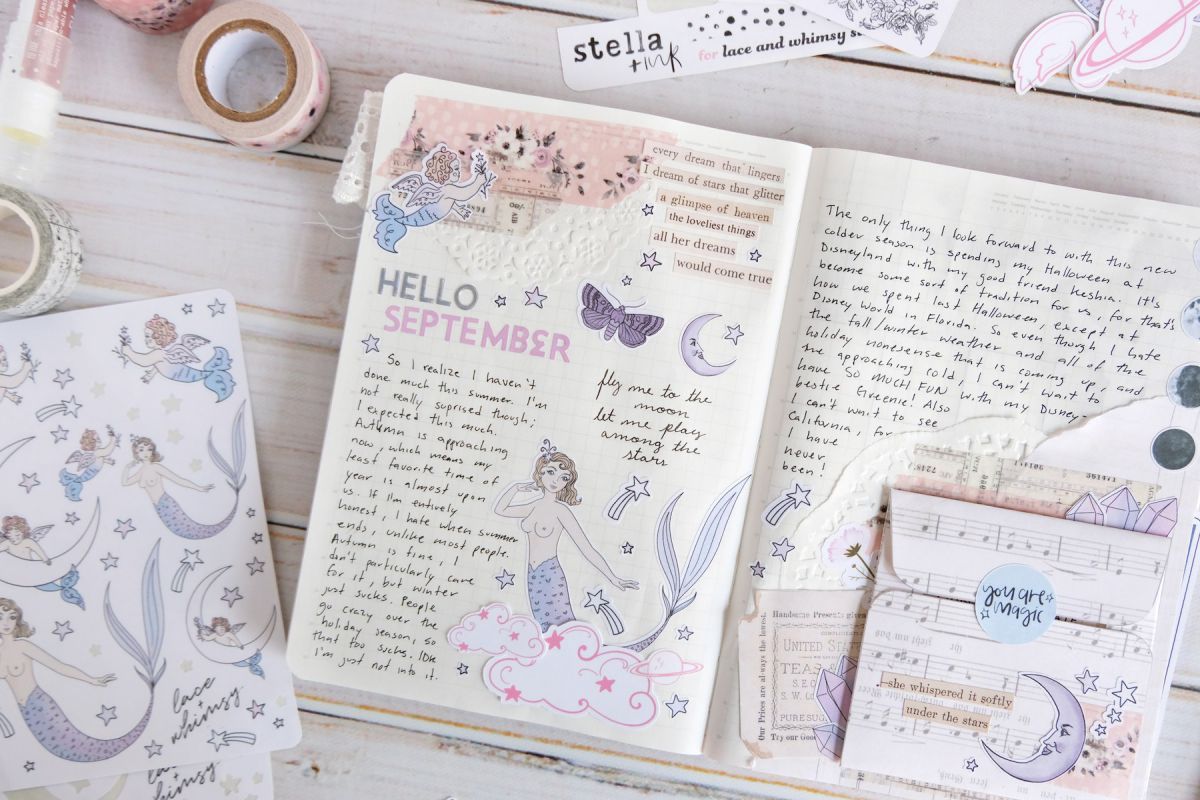 stella
+ink
for lace and whimsy
every dream that lingers
I dream of stars that glitter
a glimpse of heaven
the loveliest things
all her dreams
would come true
HELLO
SEPTEMBER
So I realize I haven't
done much this summer. I'm
not really suprised though;
I expected this much.
Autumn is approaching
now, which means my
least favorite time of
year is almost upon
us. If I'm entirely
honest, I hate when summer
ends, unlike most people.
Autumn is fine, I
don't particularly care
for it, but winter
just sucks. People
go crazy over the
holiday season, so
that too sucks. IDK
I'm just not into it.
fly me to the
moon
let me play
among the
stars
The only thing I look forward to with this new
colder season is spending my Halloween at
Disneyland with my good friend Keshia. It's
become some sort of tradition for us, for that's
how we spent last Halloween, except at
Disney World in Florida. So even though I hate
the fall/winter weather and all of the
holiday nonsense that is coming up, and
the approaching cold, I can't wait to
have SO MUCH FUN with my Disney-
bestie Greenie! Also
I can't wait to see
California, for
I have
never
been!
Handsome Presents given
UNITED STAT
TEAS
S.E.
S.W. CO
PURE SUG
Try our Goo
Our Prices are always the lowest.
you are
magic
she whispered it softly
under the stars
lace
+
whimsy